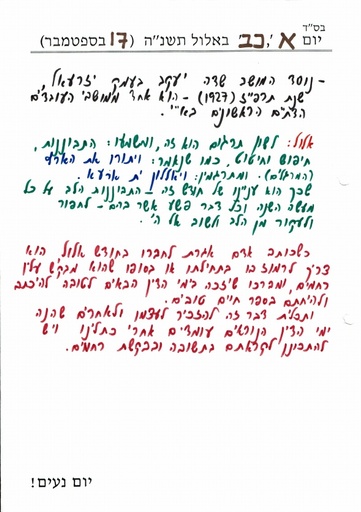 בס"ד
יום א', כב באלול תשנ"ה (17 בספטמבר)
- נוסד המושב שדה יעקב בעמק יזרעאל,
שנת תרפ"ז (1927) - הוא אחד ממושבי העובדים
הדתיים הראשונים בא"י.
אלול: לשון תרגום הוא זה, ומשמעו: התבוננות,
חיפוש וחיטוט, כמו שנאמר: ויתורו את הארץ
(המרגלים). ומתרגמינן: ויאללון ית ארעא.
שכך הוא ענינו של חודש זה - התבוננות הלב על כל
מעשה השנה וכל דבר פשע אשר בהם - לחפור
ולעקור מן הלב ולשוב אל ה'.
כשכותב אדם אגרת לחברו בחודש אלול, הוא
צריך לרמוז בו בתחילתו או בסופו שהוא מבקש עליו
רחמים, ומברכו שיזכה בימי הדין הבאים לטובה להיכתב
ולהיחתם בספר חיים טובים.
ותכלית דבר זה להזכיר לעצמו ולאחרים שהנה
ימי הדין הנוראים עומדים אחרי כתלינו ויש
להתכונן לקראתם בתשובה ובבקשת רחמים.
יום נעים!